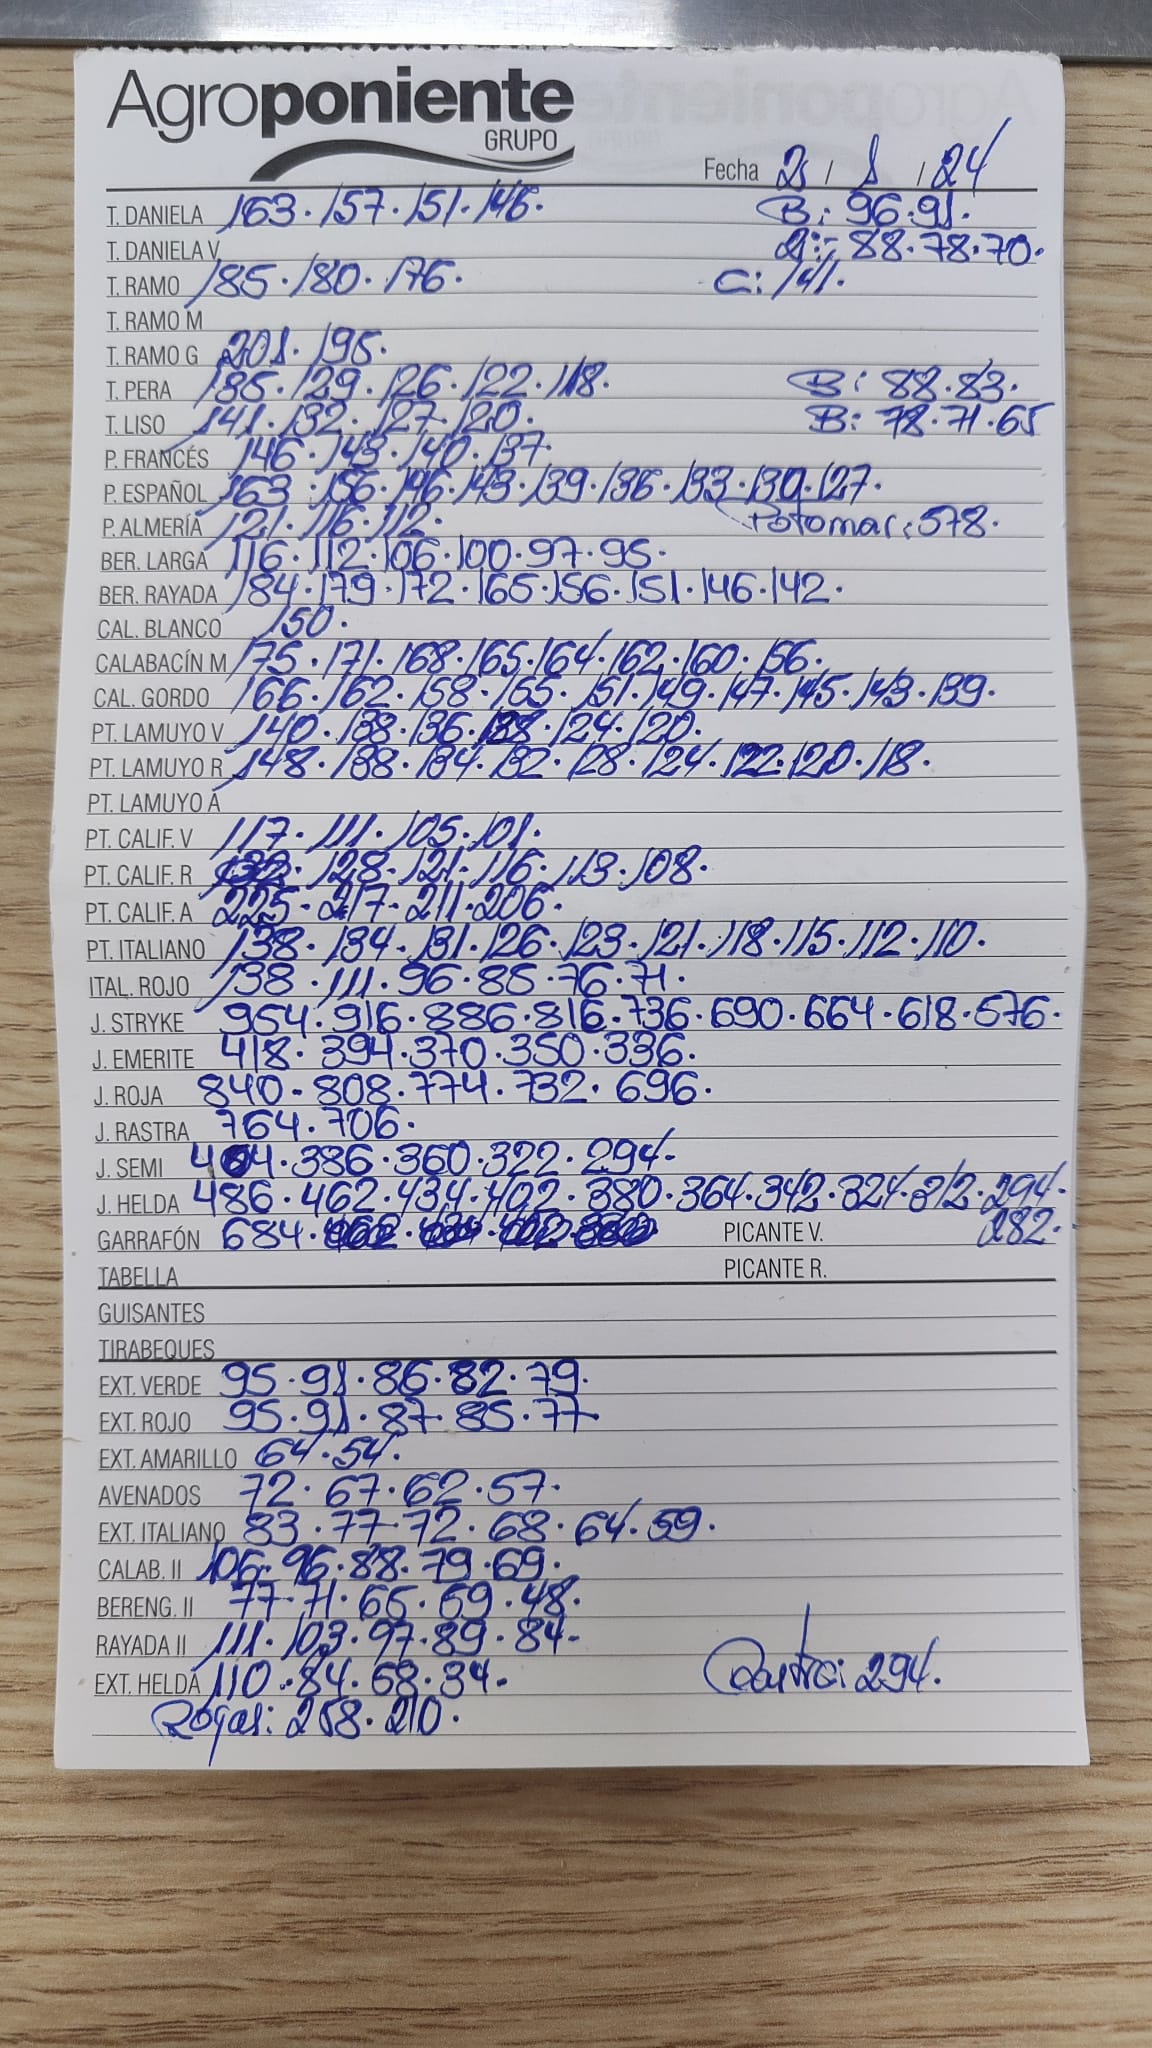 Agroponiente
GRUPO
Fecha 2 / 1 / 24
T. DANIELA 163. 157. 151. 146. B: 96.91.
T. DANIELA V 2: 88.78.70.
T. RAMO 185. 180. 176. C: 141.
T. RAMO M
T. RAMO G 201. 195.
T. PERA 135. 129. 126. 122. 118. B: 88.83.
T. LISO 141. 132. 127. 120. B: 78.71.65
P. FRANCÉS 146. 143. 140. 137.
P. ESPAÑOL 163. 156. 146. 143. 139. 136. 133. 130. 127.
P. ALMERÍA 121. 116. 112. Potomac: 578.
BER. LARGA 116. 112. 106. 100. 97. 95.
BER. RAYADA 184. 179. 172. 165. 156. 151. 146. 142.
CAL. BLANCO 150.
CALABACÍN M 175. 171. 168. 165. 164. 162. 160. 156.
CAL. GORDO 166. 162. 158. 155. 151. 149. 147. 145. 143. 139.
PT. LAMUYO V 140. 138. 136. 124. 120.
PT. LAMUYO R 148. 138. 134. 132. 128. 124. 122. 120. 118.
PT. LAMUYO A
PT. CALIF. V 117. 111. 105. 101.
PT. CALIF. R 128. 121. 116. 113. 108.
PT. CALIF. A 225. 217. 211. 206.
PT. ITALIANO 138. 134. 131. 126. 123. 121. 118. 115. 112. 110.
ITAL. ROJO 138. 111. 96. 85. 76. 71.
J. STRYKE 954. 916. 886. 816. 736. 690. 664. 618. 576.
J. EMERITE 418. 394. 370. 350. 336.
J. ROJA 840. 808. 774. 732. 696.
J. RASTRA 764. 706.
J. SEMI 404. 386. 360. 322. 294.
J. HELDA 486. 462. 434. 402. 380. 364. 342. 324. 312. 294.
GARRAFÓN 684. PICANTE V. 282.
TABELLA PICANTE R.
GUISANTES
TIRABEQUES
EXT. VERDE 95. 91. 86. 82. 79.
EXT. ROJO 95. 91. 87. 85. 77
EXT. AMARILLO 64. 54.
AVENADOS 72. 67. 62. 57.
EXT. ITALIANO 83. 77. 72. 68. 64. 59.
CALAB. II 106. 96. 88. 79. 69.
BERENG. II 77. 71. 65. 59. 48.
RAYADA II 111. 103. 97. 89. 84.
EXT. HELDA 110. 84. 68. 34. 294.
Rojas: 258. 210.